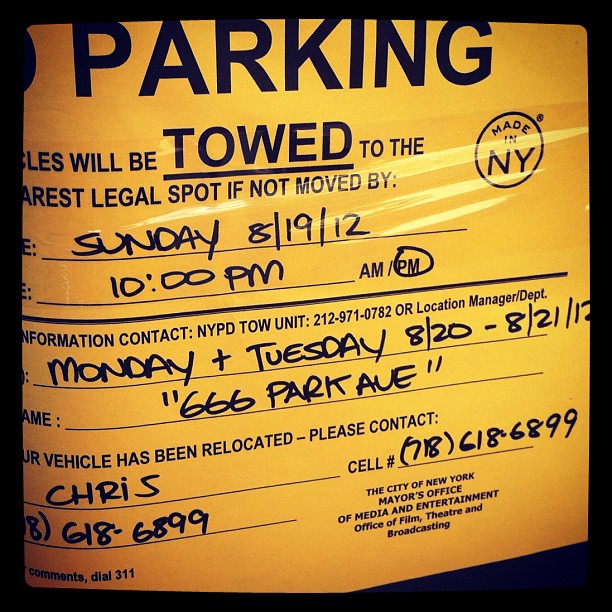 PARKING
MADE IN NY ®
CLES WILL BE TOWED TO THE
AREST LEGAL SPOT IF NOT MOVED BY:
E: SUNDAY 8/19/12
E: 10:00 PM AM / PM
NFORMATION CONTACT: NYPD TOW UNIT: 212-971-0782 OR Location Manager/Dept.
: MONDAY + TUESDAY 8/20 - 8/21/12
AME : "666 PARK AVE"
UR VEHICLE HAS BEEN RELOCATED – PLEASE CONTACT:
CHRIS CELL # (718) 618-6899
18) 618-6899
THE CITY OF NEW YORK
MAYOR'S OFFICE
OF MEDIA AND ENTERTAINMENT
Office of Film, Theatre and
Broadcasting
comments, dial 311